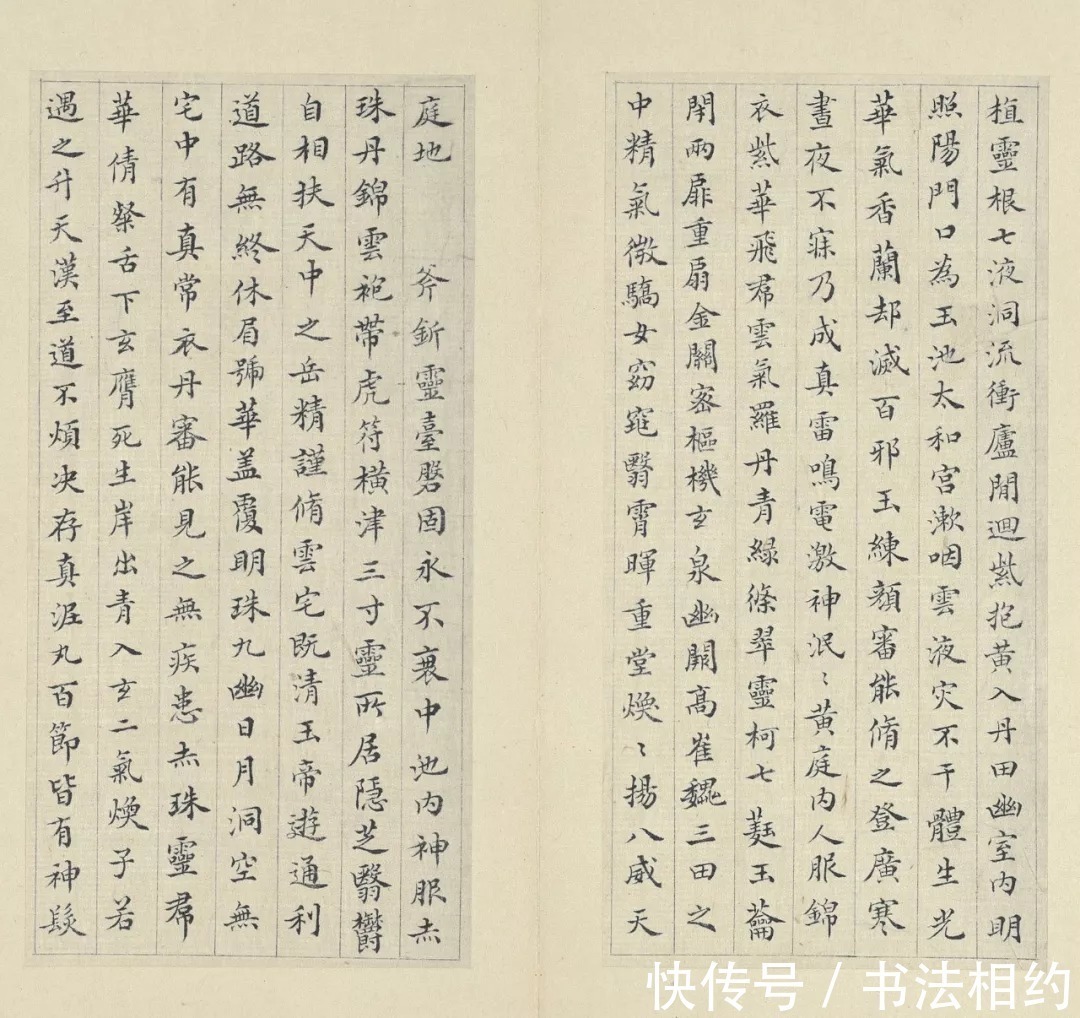 植靈根七液洞流衝廬間迴紫抱黃入丹田幽室內明
照陽門口為玉池太和宮漱咽雲液灾不干體生光
華氣香蘭却滅百邪玉練顏審能脩之登廣寒
晝夜不寐乃成真雷鳴電激神泯〻黃庭內人服錦
衣紫華飛帬雲氣羅丹青綠絛翠靈柯七蕤玉蘥
閇兩扉重扇金關密樞機玄泉幽闕高崔巍三田之
中精氣微驕女窈窕翳霄暉重堂煥〻揚八威天
庭地斧釿靈臺磐固永不衰中池內神服赤
珠丹錦雲袍帶虎符橫津三寸靈所居隱芝翳欝
自相扶天中之岳精謹脩雲宅既清玉帝遊通利
道路無終休眉號華盖覆明珠九幽日月洞空無
宅中有真常衣丹審能見之無疾患赤珠靈帬
華倩粲舌下玄膺死生岸出青入玄二氣煥子若
遇之升天漢至道不煩決存真泥丸百節皆有神髮
快传号 / 书法相约